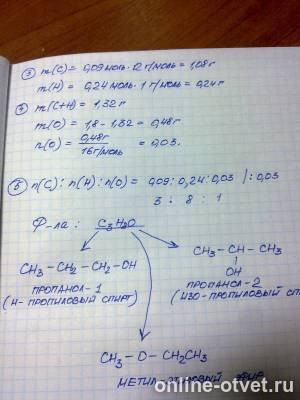 ③ m(C) = 0,09моль·12 г/моль = 1,08г
m(H) = 0,24моль·1 г/моль = 0,24г
④ m(C+H) = 1,32г
m(O) = 1,8 - 1,32 = 0,48г
n(O) = 0,48г / 16г/моль = 0,03.
⑤ n(C) : n(H) : n(O) = 0,09 : 0,24 : 0,03 | : 0,03
3 : 8 : 1
Ф-ла : C3H8O
CH3 - CH - CH3
OH
CH3 - CH2 - CH2 - OH
ПРОПАНОЛ-1
(Н-ПРОПИЛОВЫЙ СПИРТ)
ПРОПАНОЛ-2
(ИЗО-ПРОПИЛОВЫЙ СП
CH3 - O - CH2CH3
МЕТИЛ
online-otvet.ru